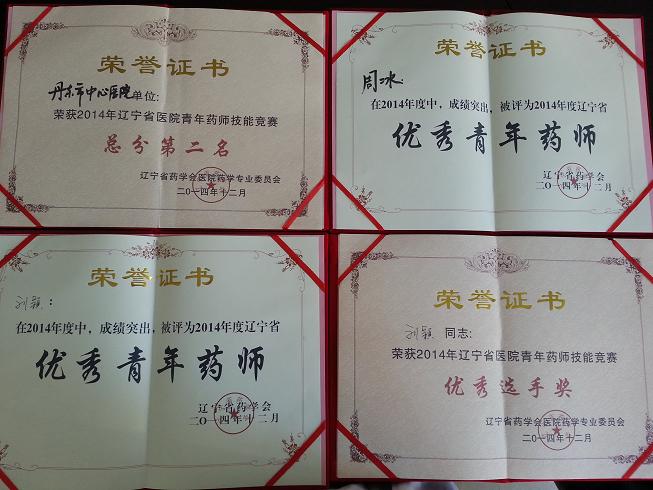 荣誉证书
丹东市中心医院单位:
荣获2014年辽宁省医院青年药师技能竞赛
总分第二名
辽宁省药学会医院药学专业委员会
二〇一四年十二月
荣誉证书
周冰:
在2014年度中，成绩突出，被评为2014年度辽宁省
优秀青年药师
辽宁省药学会
二〇一四年十二月
荣誉证书
刘颖:
在2014年度中，成绩突出，被评为2014年度辽宁省
优秀青年药师
辽宁省药学会
二〇一四年十二月
荣誉证书
刘颖 同志:
荣获2014年辽宁省医院青年药师技能竞赛
优秀选手奖
辽宁省药学会医院药学专业委员会
二〇一四年十二月